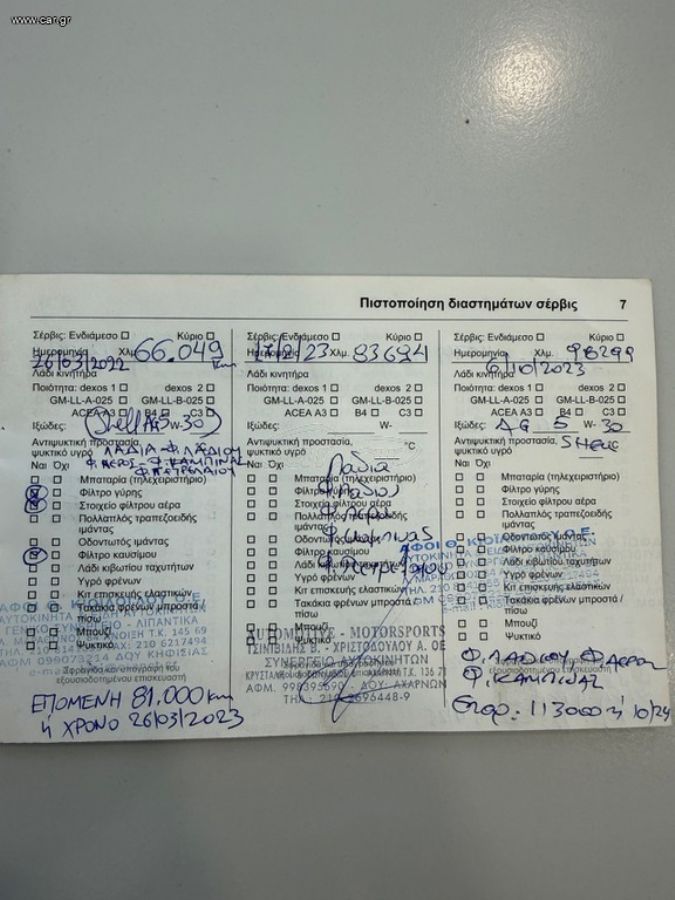 www.car.gr
Πιστοποίηση διαστημάτων σέρβις 7
Σέρβις: Ενδιάμεσο Κύριο
Ημερομηνία 26/03/2022 Χλμ. 66.049 km
Λάδι κινητήρα
Ποιότητα: dexos 1 dexos 2
GM-LL-A-025 GM-LL-B-025
ACEA A3 B4 C3
Ιξώδες: (Shell AG 5W-30)
Αντιψυκτική προστασία, ψυκτικό υγρό
ΛΑΔΙΑ - Φ.ΛΑΔΙΟΥ
Φ.ΑΕΡΟΣ - Φ.ΚΑΜΠΙΝΑΣ
Φ.ΠΕΤΡΕΛΑΙΟΥ
Ναι Όχι
Μπαταρία (τηλεχειριστήριο)
Φίλτρο γύρης
Στοιχείο φίλτρου αέρα
Πολλαπλός τραπεζοειδής
ιμάντας
Οδοντωτός ιμάντας
Φίλτρο καυσίμου
Λάδι κιβωτίου ταχυτήτων
Υγρό φρένων
Κιτ επισκευής ελαστικών
Τακάκια φρένων μπροστά /
πίσω
Μπουζί
Ψυκτικό
ΣΥΝΕΡΓΕΙΟ - ΛΙΠΑΝΤΙΚΑ
ΑΝΟΙΞΗ Τ.Κ. 145 69
FAX: 210 6217494
ΑΦΜ 099073214 ΔΟΥ ΚΗΦΙΣΙΑΣ
Σφραγίδα και υπογραφή του
εξουσιοδοτημένου επισκευαστή
ΕΠΟΜΕΝΗ 81.000 km
ή ΧΡΟΝΟ 26/03/2023
Σέρβις: Ενδιάμεσο Κύριο
Ημερομηνία 17/2/23 Χλμ. 83694
Λάδι κινητήρα
Ποιότητα: dexos 1 dexos 2
GM-LL-A-025 GM-LL-B-025
ACEA A3 B4 C3
Ιξώδες: W-
Αντιψυκτική προστασία,
ψυκτικό υγρό °C
Ναι Όχι
Λάδια
Φ.Λαδιου
Φ.Αερος
Φ.Καμπινας
Φ.Πετρελαίου
Μπαταρία (τηλεχειριστήριο)
Φίλτρο γύρης
Στοιχείο φίλτρου αέρα
Πολλαπλός τραπεζοειδής
ιμάντας
Οδοντωτός ιμάντας
Φίλτρο καυσίμου
Λάδι κιβωτίου ταχυτήτων
Υγρό φρένων
Κιτ επισκευής ελαστικών
Τακάκια φρένων μπροστά /
πίσω
Μπουζί
Ψυκτικό
AUTOMOTIVE - MOTORSPORTS
ΤΣΙΝΤΒΙΔΗΣ Β. - ΧΡΙΣΤΟΔΟΥΛΟΥ Α. ΟΕ
ΣΥΝΕΡΓΕΙΟ ΑΥΤΟΚΙΝΗΤΩΝ
Τ.Κ. 136 71
ΑΦΜ. 998395690 - ΔΟΥ: ΑΧΑΡΝΩΝ
ΤΗΛ.: 210 2696448-9
Σέρβις: Ενδιάμεσο Κύριο
Ημερομηνία 6/10/2023 Χλμ. 98299
Λάδι κινητήρα
Ποιότητα: dexos 1 dexos 2
GM-LL-A-025 GM-LL-B-025
ACEA A3 B4 C3
Ιξώδες: AG 5 W- 30
Αντιψυκτική προστασία, SHELL
ψυκτικό υγρό °C
Ναι Όχι
Μπαταρία (τηλεχειριστήριο)
Φίλτρο γύρης
Στοιχείο φίλτρου αέρα
Πολλαπλός τραπεζοειδής
ιμάντας
Οδοντωτός ιμάντας
Φίλτρο καυσίμου
Λάδι κιβωτίου ταχυτήτων
Υγρό φρένων
Κιτ επισκευής ελαστικών
Τακάκια φρένων μπροστά /
πίσω
Μπουζί
Ψυκτικό
Φ.ΛΑΔΙΟΥ Φ.ΑΕΡΟΣ
Φ.ΚΑΜΠΙΝΑΣ
εξουσιοδοτημένου επισκευαστή
Επομ: 113000 ή 10/24